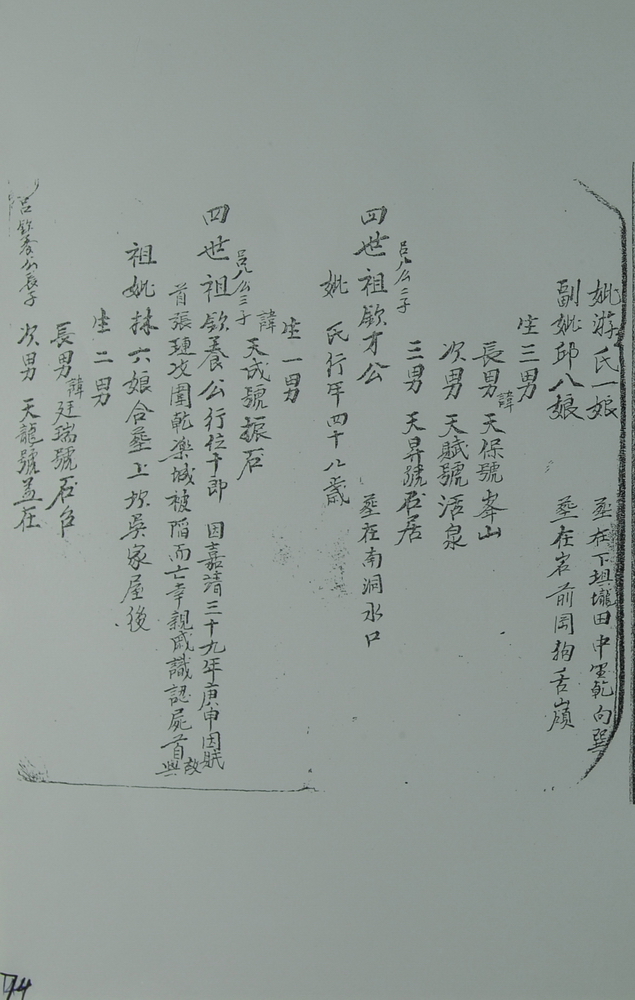 妣游氏一娘 葬在下埧壠田中坐乾向巽
副妣邱八娘 葬在岩前崗狗舌嶺
生三男
長男諱天保號峯山
次男 天賦號活泉
三男 天昇號石居
四世祖欽才公 葬在南洞水口
呂八公二子
妣 氏行年四十八歲
生一男
諱天成號振石
呂八公三子
四世祖欽養公行位十郎 因嘉靖三十九年庚申因賊
首張璉攻圍乾樂城被陷而亡幸親戚識認屍首故與
祖妣林六娘合葬上坎吳家屋後
生二男
長男諱廷瑞號石台
次男 天龍號孟在
呂欽養公長子
74